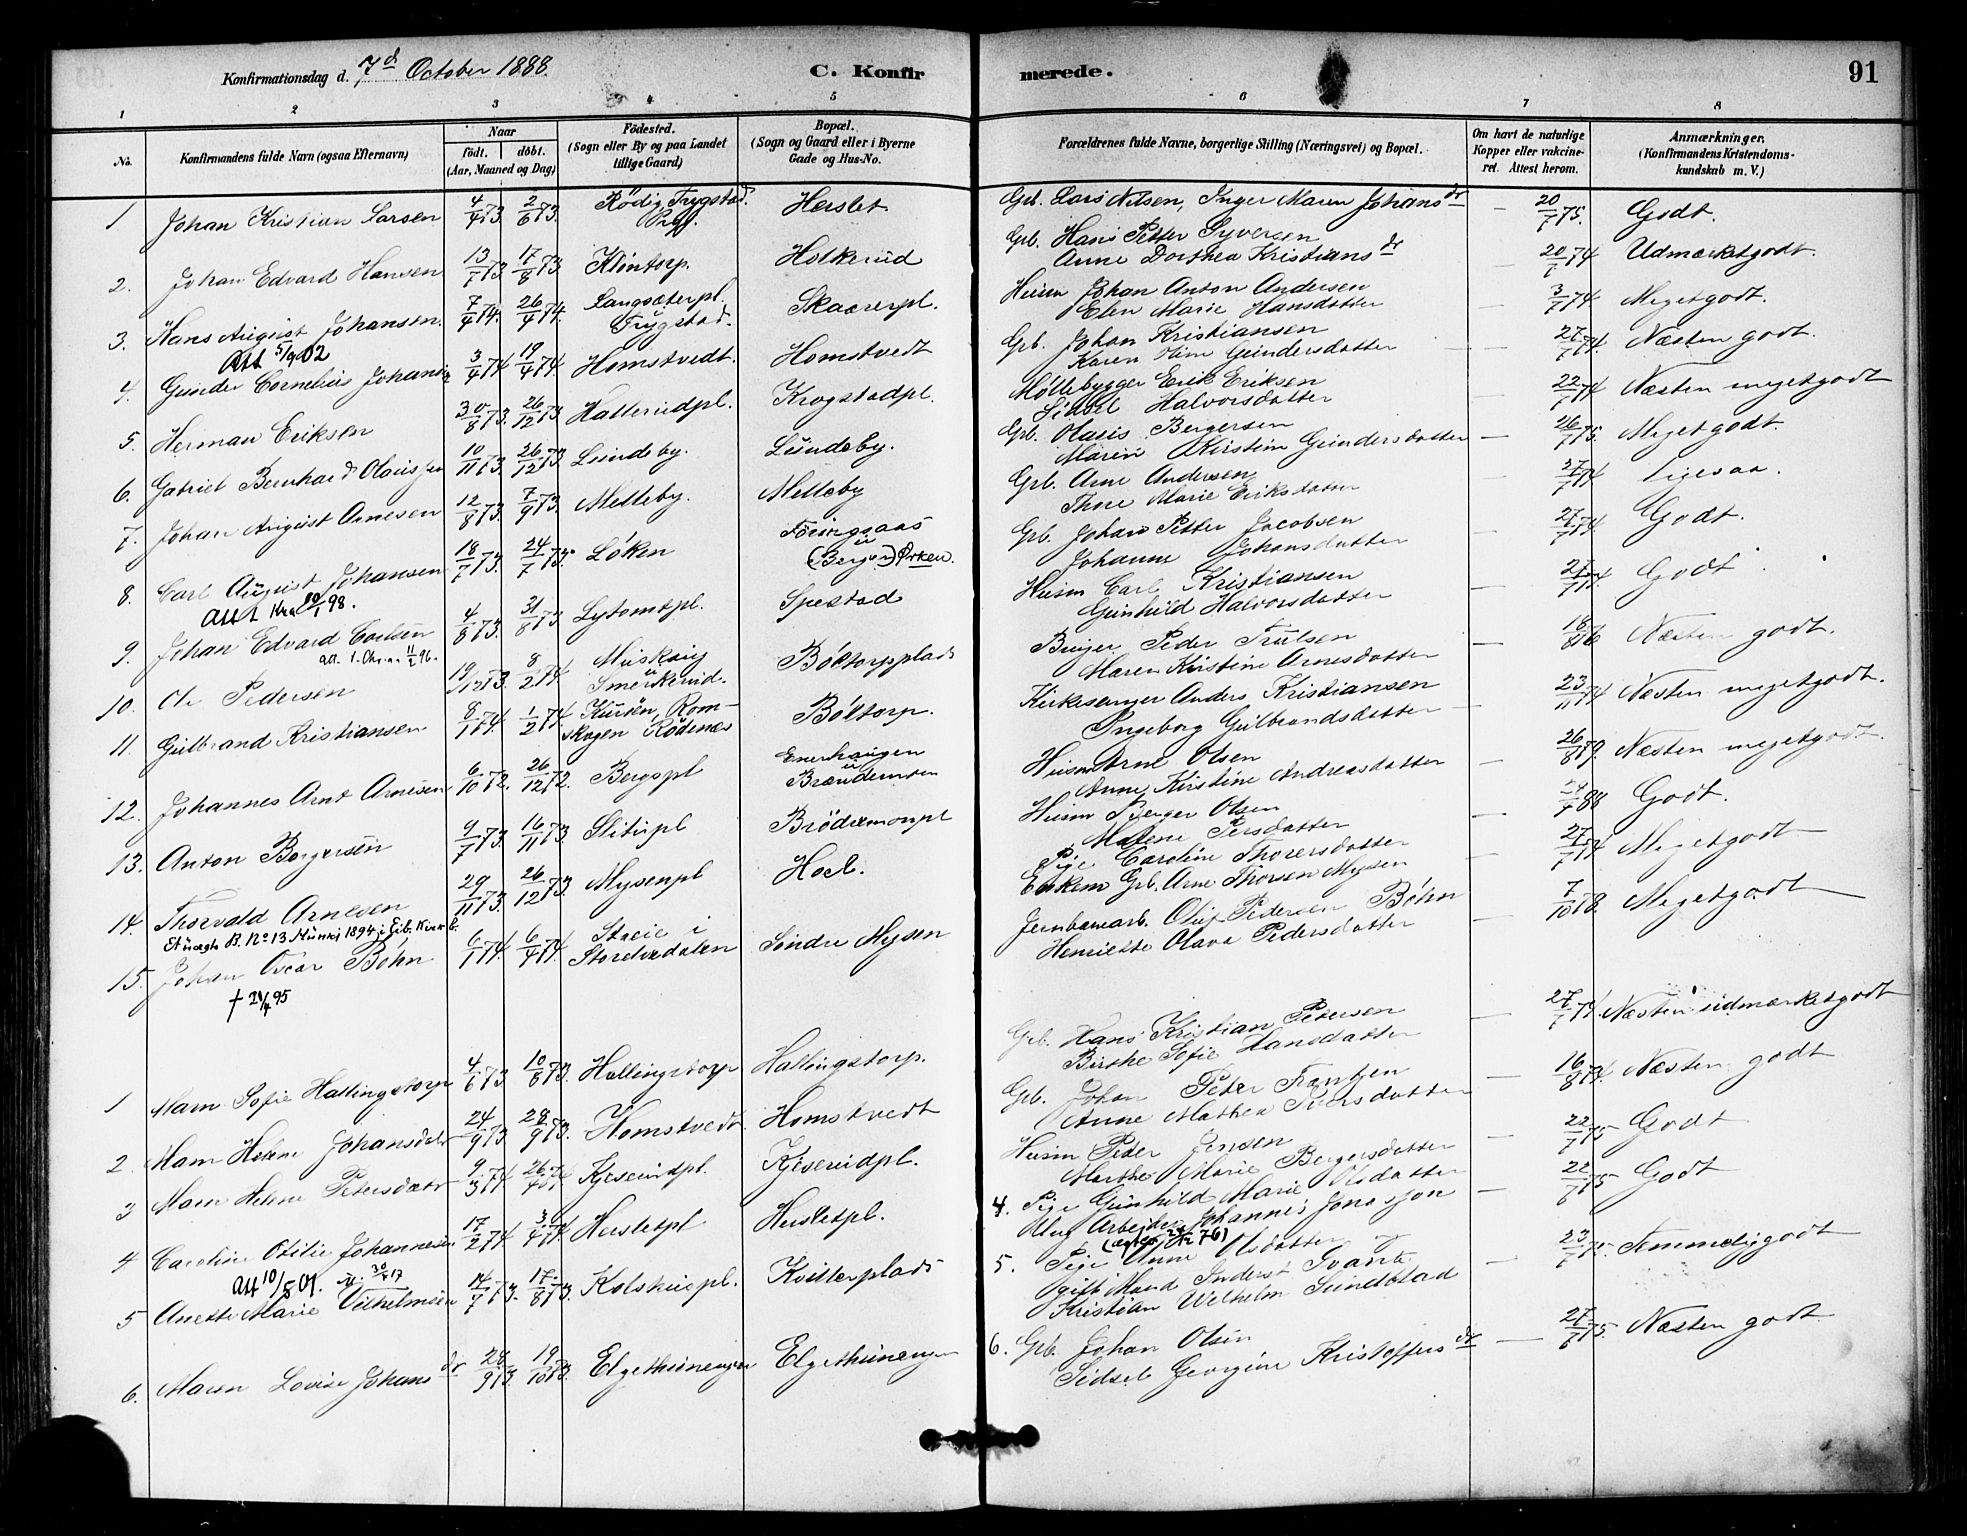 Konfirmationsdag d. 7d October 1888. C. Konfirmerede. 91
1 2 3 4 5 6 7 8
No. Konfirmandens fulde Navn (ogsaa Efternavn) Naar født. døbt. (Aar, Maaned og Dag) Födested. (Sogn eller By og paa Landet tillige Gaard) Bopæl. (Sogn og Gaard eller i Byerne Gade og Hus-No. Forældrenes fulde Navne, borgerlige Stilling (Næringsvei) og Bopæl. Om havt de naturlige Kopper eller vakcineret. Attest herom. Anmærkninger. (Konfirmandens Kristendomskundskab m. V.)
1 Johan Kristian Larsen 4/4 73 2/6 73. Trygstad Prgj. Herslet Gb. Lars Nilsen, Inger Maren Johansdr — 20/7 75. Godt.
2. Johan Edvard Hansen 13/7 73 17/8 73. Klöntorp. Holkerud Gb. Hans Petter Syversen
Anne Dorthea Kristiansdr — 20/7 74 Udmærketgodt.
3. Hans August Johansen 7/4 74. 26/4 74. Langsæterpl. Trygstad. Skaarerpl. Husm Johan Anton Andersen
Elen Marie Hansdatter — 3/7 74 Megetgodt.
Att 5/9 02
4. Gunder Cornelius Johansen 3/4 74 19/4 74. Homstvedt. Homstvedt Gb. Johan Kristiansen
Karen Oline Gundersdatter — 27/7 74. Næsten godt.
5. Herman Eriksen 30/8 73. 26/12 73 Hatterudpl. Krogstadpl. Møllebygger Erik Eriksen
Sidsel Halvorsdatter — 22/7 74 Næsten megetgodt
6. Gabriel Bernhard Olaussen 10/11 73. 26/12 73 Lundeby. Lundeby. Gb. Olaus Bergersen
Maren Kirstine Gundersdatter — 26/7 75. Megetgodt.
7. Johan August Arnesen 12/8 73. 7/9 73. Melleby. Melleby Gb. Arne Andersen
Thne Marie Eriksdatter — 27/7 74 Ligesaa.
8. Carl August Johansen 18/7 73. 24/7 73. Løken Foringsaas (Berger u Ørken. Gb. Johan Petter Jacobsen
Johanne Johansdatter — 27/7 74 Godt.
Att Kra 10/1 98.
9. Johan Edvard Carlsen 4/8 73. 31/8 73 Lytomtpl. Spestad Husm Carl Kristiansen
Gunhild Halvorsdatter — 74 Godt
att. t. Chr.a. 11/2 96.
10. Ole Pedersen 19/12 73. 8/2 74 Smerkerud. Böltorpplads Peder Trulsen
Maren Kirstine Arnesdatter — 18/8 76 Næsten godt.
11. Gulbrand Kristiansen 8/1 74. 1/2 74. Kurøen, Romskogen Rödenæs Böltorp. Kirkesanger Anders Kristiansen
Ingeborg Gulbrandsdatter — 23/11 74 Næsten megetgodt.
12. Johannes Arnt Arnesen 6/10 72. 26/12 72. Bergspl Enerhaugen u Brændemoen Husm Arne Olsen
Anne Kirstine Andreasdatter — 26/8 79. Næsten megetgodt.
13. Anton Borgersen 9/7 73. 16/11 73. Slitupl Brödremonpl Husm Berger Olsen
Malene Persdatter — 88 Godt.
14. Thorvald Arnesen 29/11 73. 26/12 73. Mysenpl Hoel. Pige Caroline Thoresdatter
Enkem Gb. Arne Thorsen Mysen — 27/7 74 Megetgodt
15. Johan Oscar Bøhn 6/1 74. 6/4 74. i Storelvedalen Söndre Mysen Jernbanearb. Oluf Pedersen Bøhn
Henriette Olava Pedersdatter — 7/10 78. Megetgodt
† 21/4 95
1 Maren Sofie Hallingstorp 4/6 73 10/8 73. Hallingstorp Hallingstorp. Gb. Hans Kristian Petersen
Birthe Sofie Hansdatter — 27/7 74. Næsten udmærketgodt
2 Maren Helene Johansdatter 24/9 73 28/9 73. Homstvedt Homstvedt Gb. Johan Peter Frantzen
Anne Mathea Iversdatter — 16/8 74. Næsten godt
3 Maren Helene Petersdatter 9/3 74 26/4 74 Kjeserudpl. Kjeserudpl. Husm Peder Jensen
Marthe Marie Bergersdatter — 22/7 75 Godt
4 Caroline Otilie Johannesen 17/2 74 3/4 74 Hersletpl Hersletpl. 4. Pige Gunhild Marie Olsdatter
Ung Arbeider Johannes Jonasson — 22/6 75 Godt
Att 10/5 01.
5 Anette Marie Vilhelmsen 14/7 73. 17/8 73. Kolskuepl. Kvitterplads 5. Pige Anne Olsdatter og
gift Mand Svante
Kristian Wilhelm Sundblad — 23/7 75. Temmeliggodt
6. Maren Lovise Johansdr 28/9 73. 19/10 73. Elgethunengen Elgethunengen 6. Gb. Johan Olsen
Sidsel Georgine Kristoffersdr — 27/6 75. Næsten godt